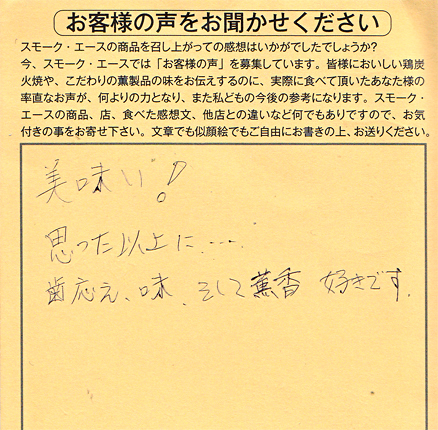 お客様の声をお聞かせください
スモーク・エースの商品を召し上がっての感想はいかがでしたでしょうか?
今、スモーク・エースでは「お客様の声」を募集しています。皆様においしい鶏炭
火焼や、こだわりの薫製品の味をお伝えするのに、実際に食べて頂いたあなた様の
率直なお声が、何よりの力となり、また私どもの今後の参考になります。スモーク・
エースの商品、店、食べた感想文、他店との違いなど何でもありですので、お気
付きの事をお寄せ下さい。文章でも似顔絵でもご自由にお書きの上、お送りください。
美味い!
思った以上に.....
歯応え、味、そして薫香 好きです.